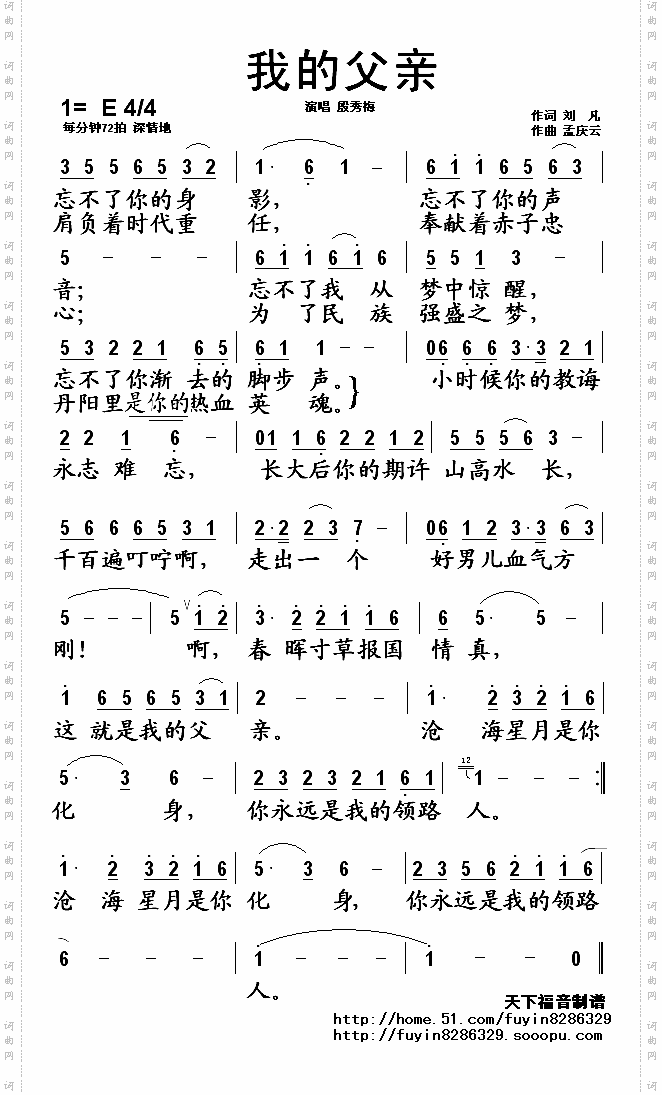 我的父亲
1= E 4/4
演唱 殷秀梅
作词 刘 凡
每分钟72拍 深情地
作曲 孟庆云
3 5 5 6 5 3 2 | 1· 6 1 | 6 1 1 1 6 5 6 3
忘不了你的身 影， 忘不了你的声
肩负着时代重 任， 奉献着赤子忠
5 - - - | 6 1 1 1 6 1 6 | 5 5 1 3 -
音； 忘不了我 从 梦中惊 醒，
心； 为 了民 族 强盛之 梦，
5 3 2 2 1 6 5 | 6 1 1 - - | 06 6 6 3·3 2 1
忘不了你渐 去的 脚步 声。 小时候你的教诲
丹阳里是你的热血 英 魂。
2 2 1 6 - | 01 1 6 2 2 1 2 | 5 5 5 6 3 -
永志 难 忘， 长大后你的期许 山高水 长，
5 6 6 6 5 3 1 | 2·2 2 3 7 - | 06 1 2 3·3 6 3
千百遍叮咛啊， 走出一 个 好男儿血气方
5 - - - | 5 V 1 2 | 3· 2 2 1 1 6 | 6 5· 5 -
刚！ 啊， 春 晖寸草报国 情 真，
1 6 5 6 5 3 1 | 2 - - - | 1· 2 3 2 1 6
这 就是我的父 亲。 沧 海星月是你
5· 3 6 - | 2 3 2 3 2 1 6 1 | 12 1 - - - :||
化 身， 你永远是我的领路 人。
1· 2 3 2 1 6 | 5· 3 6 - | 2 3 5 6 2 1 1 6
沧 海 星月是你 化 身， 你永远是我的领路
6 - - - | 1 - - - | 1 - - 0 ||
人。
天下福音制谱
http://home.51.com/fuyin8286329
http://fuyin8286329.sooopu.com
词曲网